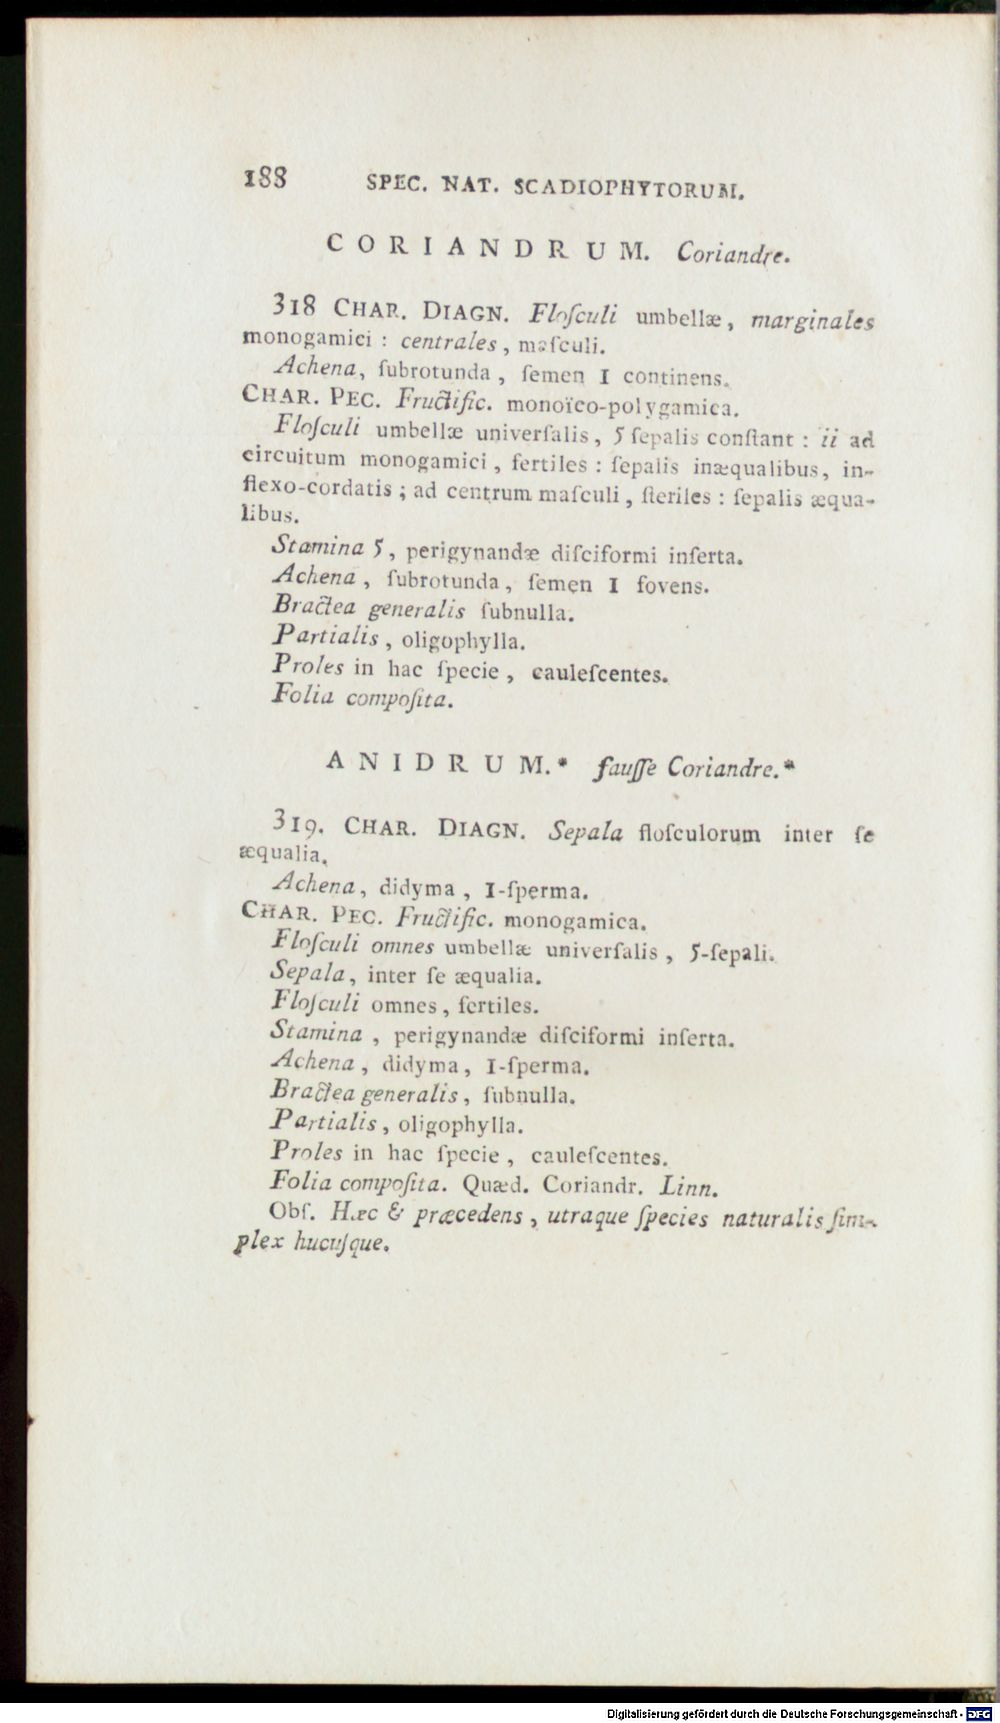 188 SPEC. NAT. SCADIOPHYTORUM.
CORIANDRUM. Coriandre.
318 CHAR. DIAGN. Floſculi umbellæ, marginales
monogamici : centrales, maſculi.
Achena, ſubrotunda, ſemen I continens.
CHAR. PEC. Fructific. monoïco-polygamica.
Floſculi umbellæ univerſalis, 5 ſepalis conſtant : ii ad
circuitum monogamici, fertiles : ſepalis inæqualibus, in-
flexo-cordatis ; ad centrum maſculi, ſteriles : ſepalis æqua-
libus.
Stamina 5, perigynandæ diſciformi inſerta.
Achena, ſubrotunda, ſemen I fovens.
Bractea generalis ſubnulla.
Partialis, oligophylla.
Proles in hac ſpecie, cauleſcentes.
Folia compoſita.
ANIDRUM.* fauſſe Coriandre.*
319. CHAR. DIAGN. Sepala floſculorum inter ſe
æqualia.
Achena, didyma, I-ſperma.
CHAR. PEC. Fructific. monogamica.
Floſculi omnes umbellæ univerſalis, 5-ſepali.
Sepala, inter ſe æqualia.
Floſculi omnes, fertiles.
Stamina, perigynandæ diſciformi inſerta.
Achena, didyma, I-ſperma.
Bractea generalis, ſubnulla.
Partialis, oligophylla.
Proles in hac ſpecie, cauleſcentes.
Folia compoſita. Quæd. Coriandr. Linn.
Obſ. Hæc & præcedens, utraque ſpecies naturalis ſim-
plex hucuſque.
Digitalisierung gefördert durch die Deutsche Forschungsgemeinschaft - DFG